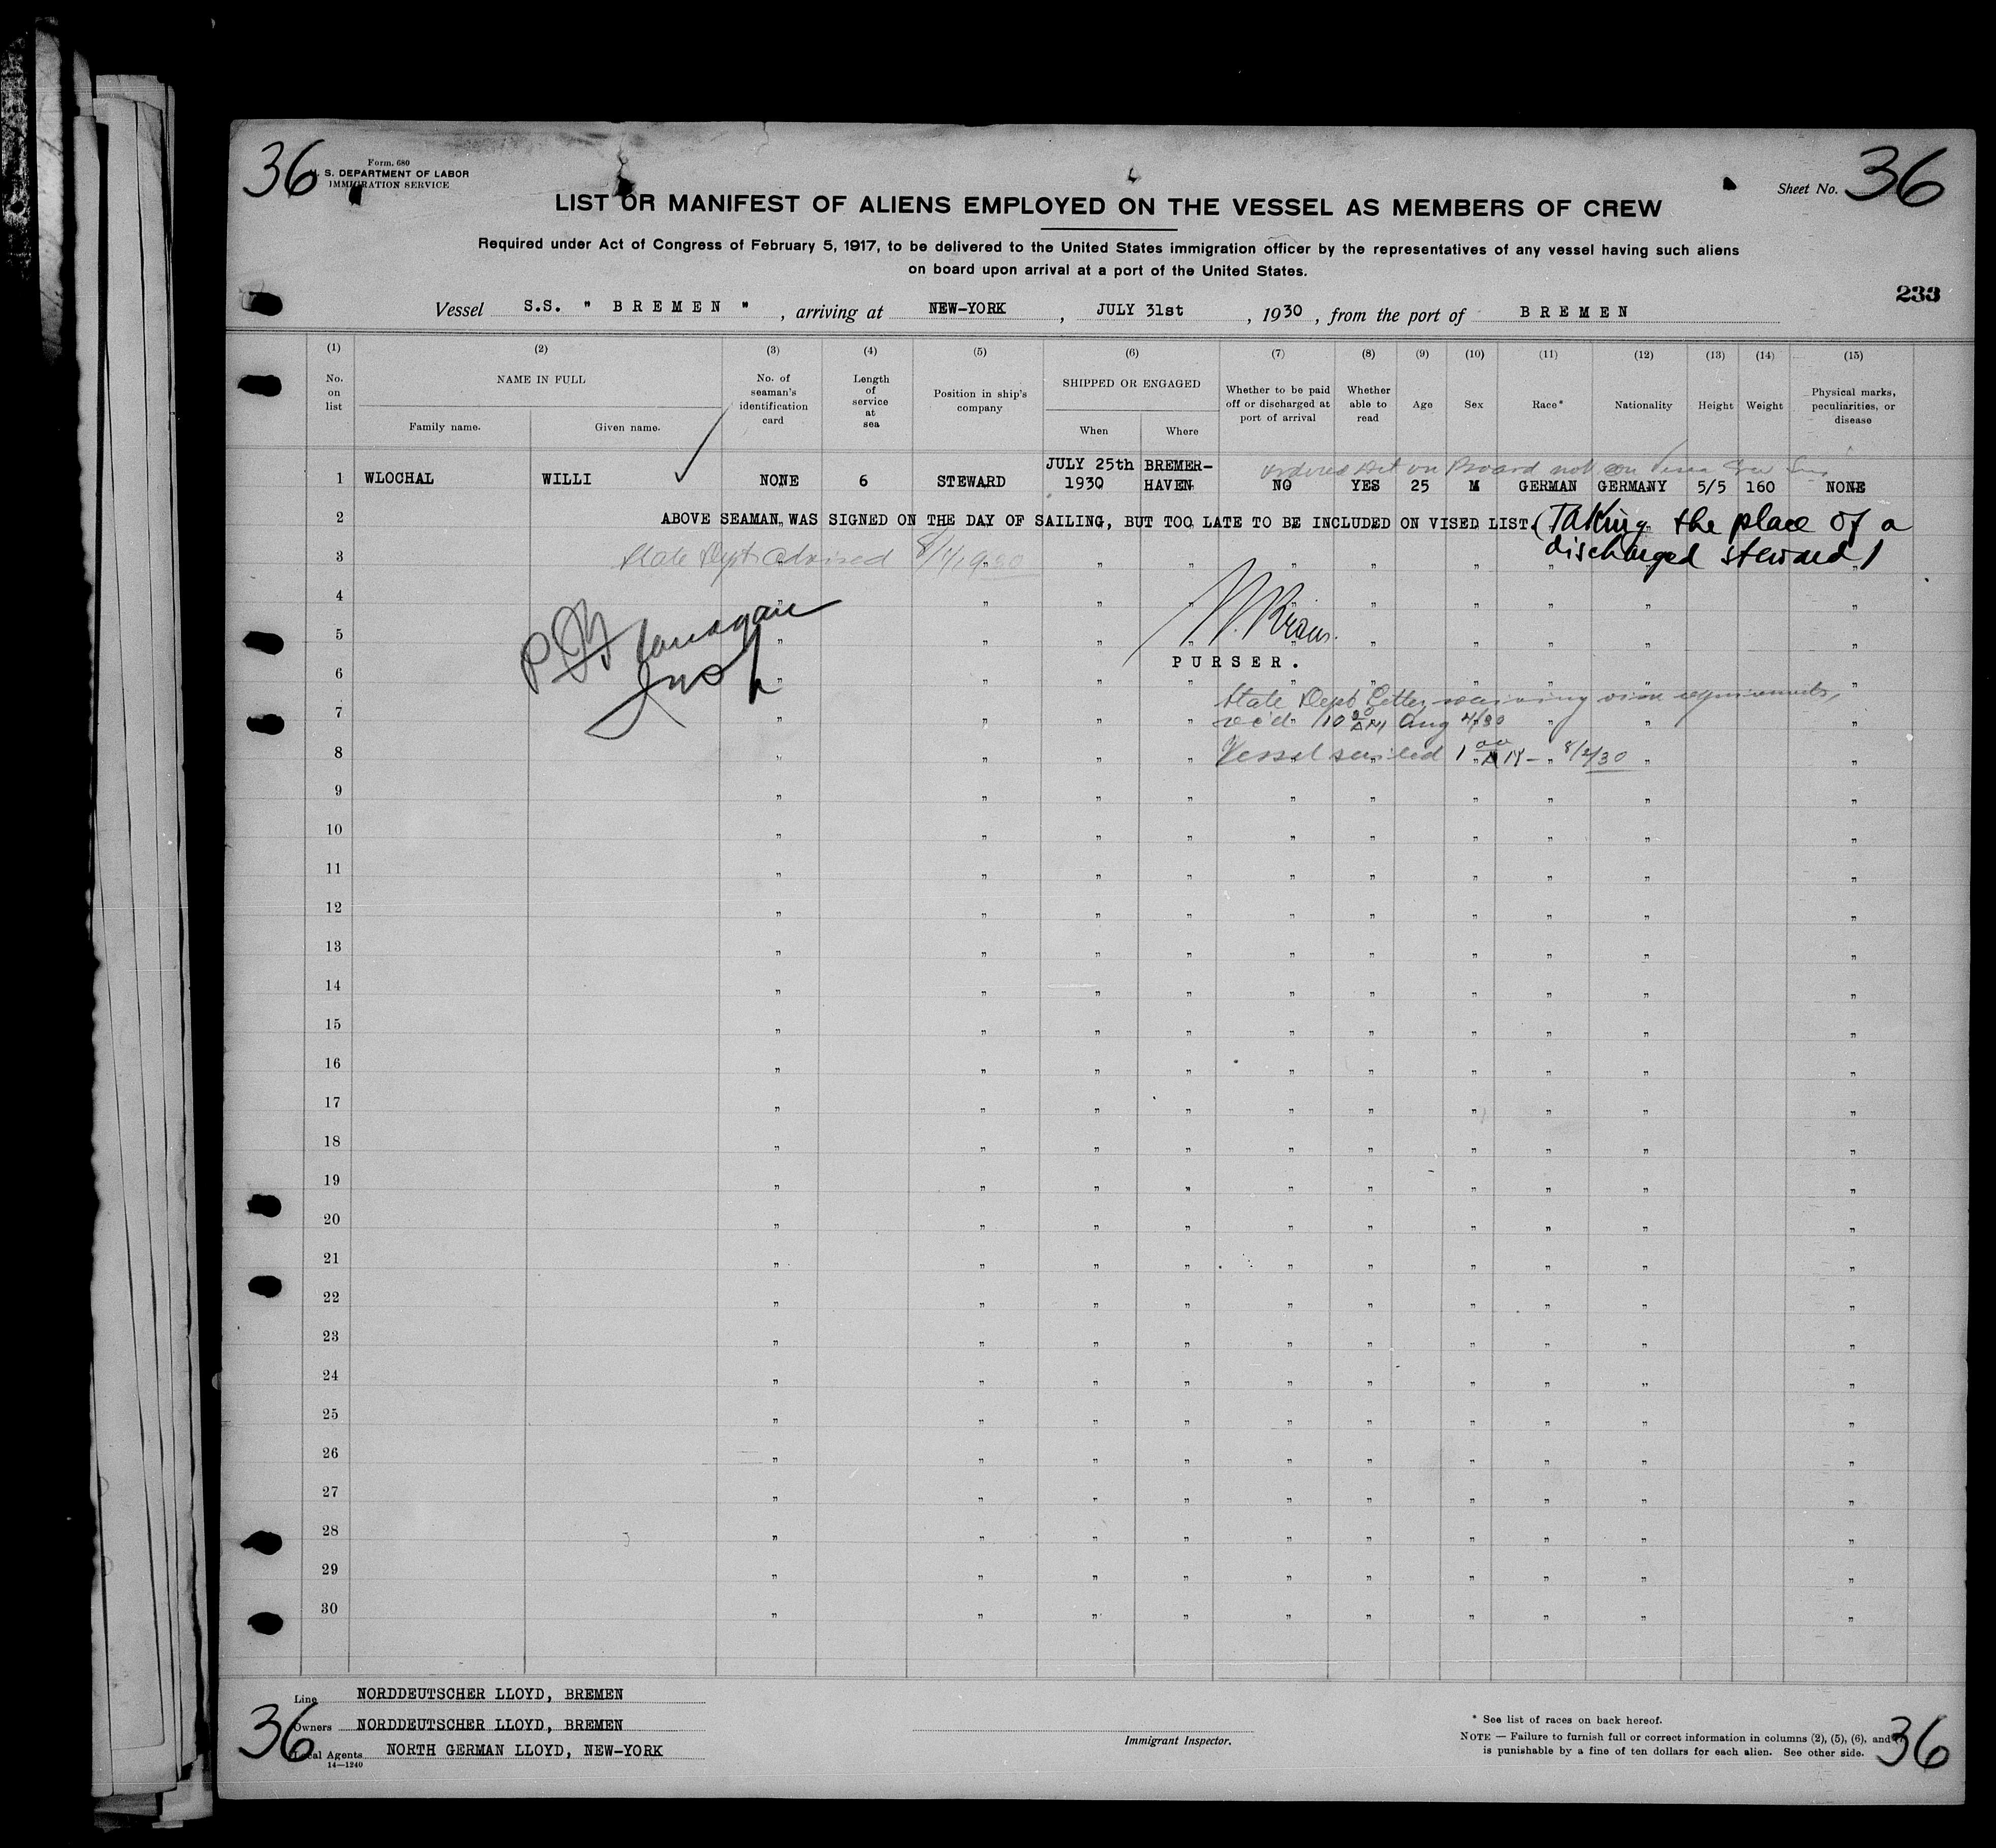 36
Form. 680
S. DEPARTMENT OF LABOR
IMMIGRATION SERVICE
Sheet No. 36
LIST OR MANIFEST OF ALIENS EMPLOYED ON THE VESSEL AS MEMBERS OF CREW
Required under Act of Congress of February 5, 1917, to be delivered to the United States immigration officer by the representatives of any vessel having such aliens
on board upon arrival at a port of the United States.
233
Vessel S.S. " BREMEN " , arriving at NEW-YORK , JULY 31st , 1930 , from the port of BREMEN
(1) (2) (3) (4) (5) (6) (7) (8) (9) (10) (11) (12) (13) (14) (15)
No. on list NAME IN FULL Family name. Given name. No. of seaman's identification card Length of service at sea Position in ship's company SHIPPED OR ENGAGED When Where Whether to be paid off or discharged at port of arrival Whether able to read Age Sex Race* Nationality Height Weight Physical marks, peculiarities, or disease
ordered Det on Board not on visa
1 WLOCHAL WILLI NONE 6 STEWARD JULY 25th 1930 BREMER-HAVEN NO YES 25 M GERMAN GERMANY 5/5 160 NONE
2 ABOVE SEAMAN WAS SIGNED ON THE DAY OF SAILING, BUT TOO LATE TO BE INCLUDED ON VISED LIST. (Taking the place of a
discharged steward)
3 State Dept. advised 8/1/1930 " " " " " " "
4 " " " " " " " "
P. Flanagan
Insp
5 " " " " " " "
PURSER.
6 " " " " " " " " "
State Dept Letter waiving visa requirements,
7 " " " " rec'd 10 30 AM Aug /30 " " "
8 " " " " Vessel sailed 1 00 AM - 8/2/30 " "
9 " " " " " " " " " "
10 " " " " " " " " " "
11 " " " " " " " " " "
12 " " " " " " " " " "
13 " " " " " " " " " "
14 " " " " " " " " " "
15 " " " " " " " " " "
16 " " " " " " " " " "
17 " " " " " " " " " "
18 " " " " " " " " " "
19 " " " " " " " " " "
20 " " " " " " " " " "
21 " " " " " " " " " "
22 " " " " " " " " " "
23 " " " " " " " " " "
24 " " " " " " " " " "
25 " " " " " " " " " "
26 " " " " " " " " " "
27 " " " " " " " " " "
28 " " " " " " " " " "
29 " " " " " " " " " "
30 " " " " " " " " " "
Line NORDDEUTSCHER LLOYD, BREMEN
Owners NORDDEUTSCHER LLOYD, BREMEN
Local Agents NORTH GERMAN LLOYD, NEW-YORK
14—1240
36
Immigrant Inspector.
* See list of races on back hereof.
NOTE — Failure to furnish full or correct information in columns (2), (5), (6), and
is punishable by a fine of ten dollars for each alien. See other side.
36